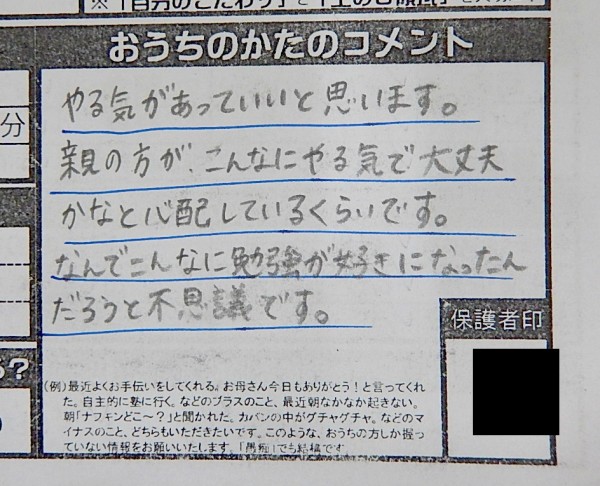 ※「自分のこだわり」と「
おうちのかたのコメント
やる気があっていいと思います。
親の方が、こんなにやる気で大丈夫
かなと心配しているくらいです。
なんでこんなに勉強が好きになったん
だろうと不思議です。
分
保護者印
る?
(例)最近よくお手伝いをしてくれる。お母さん今日もありがとう!と言ってくれ
た。自主的に塾に行く。などのプラスのこと、最近朝なかなか起きない。
朝「ナフキンどこ〜?」と聞かれた。カバンの中がグチャグチャ。などのマ
イナスのこと、どちらもいただきたいです。このような、おうちの方しか握っ
ていない情報をお願いいたします。「愚痴」でも結構です